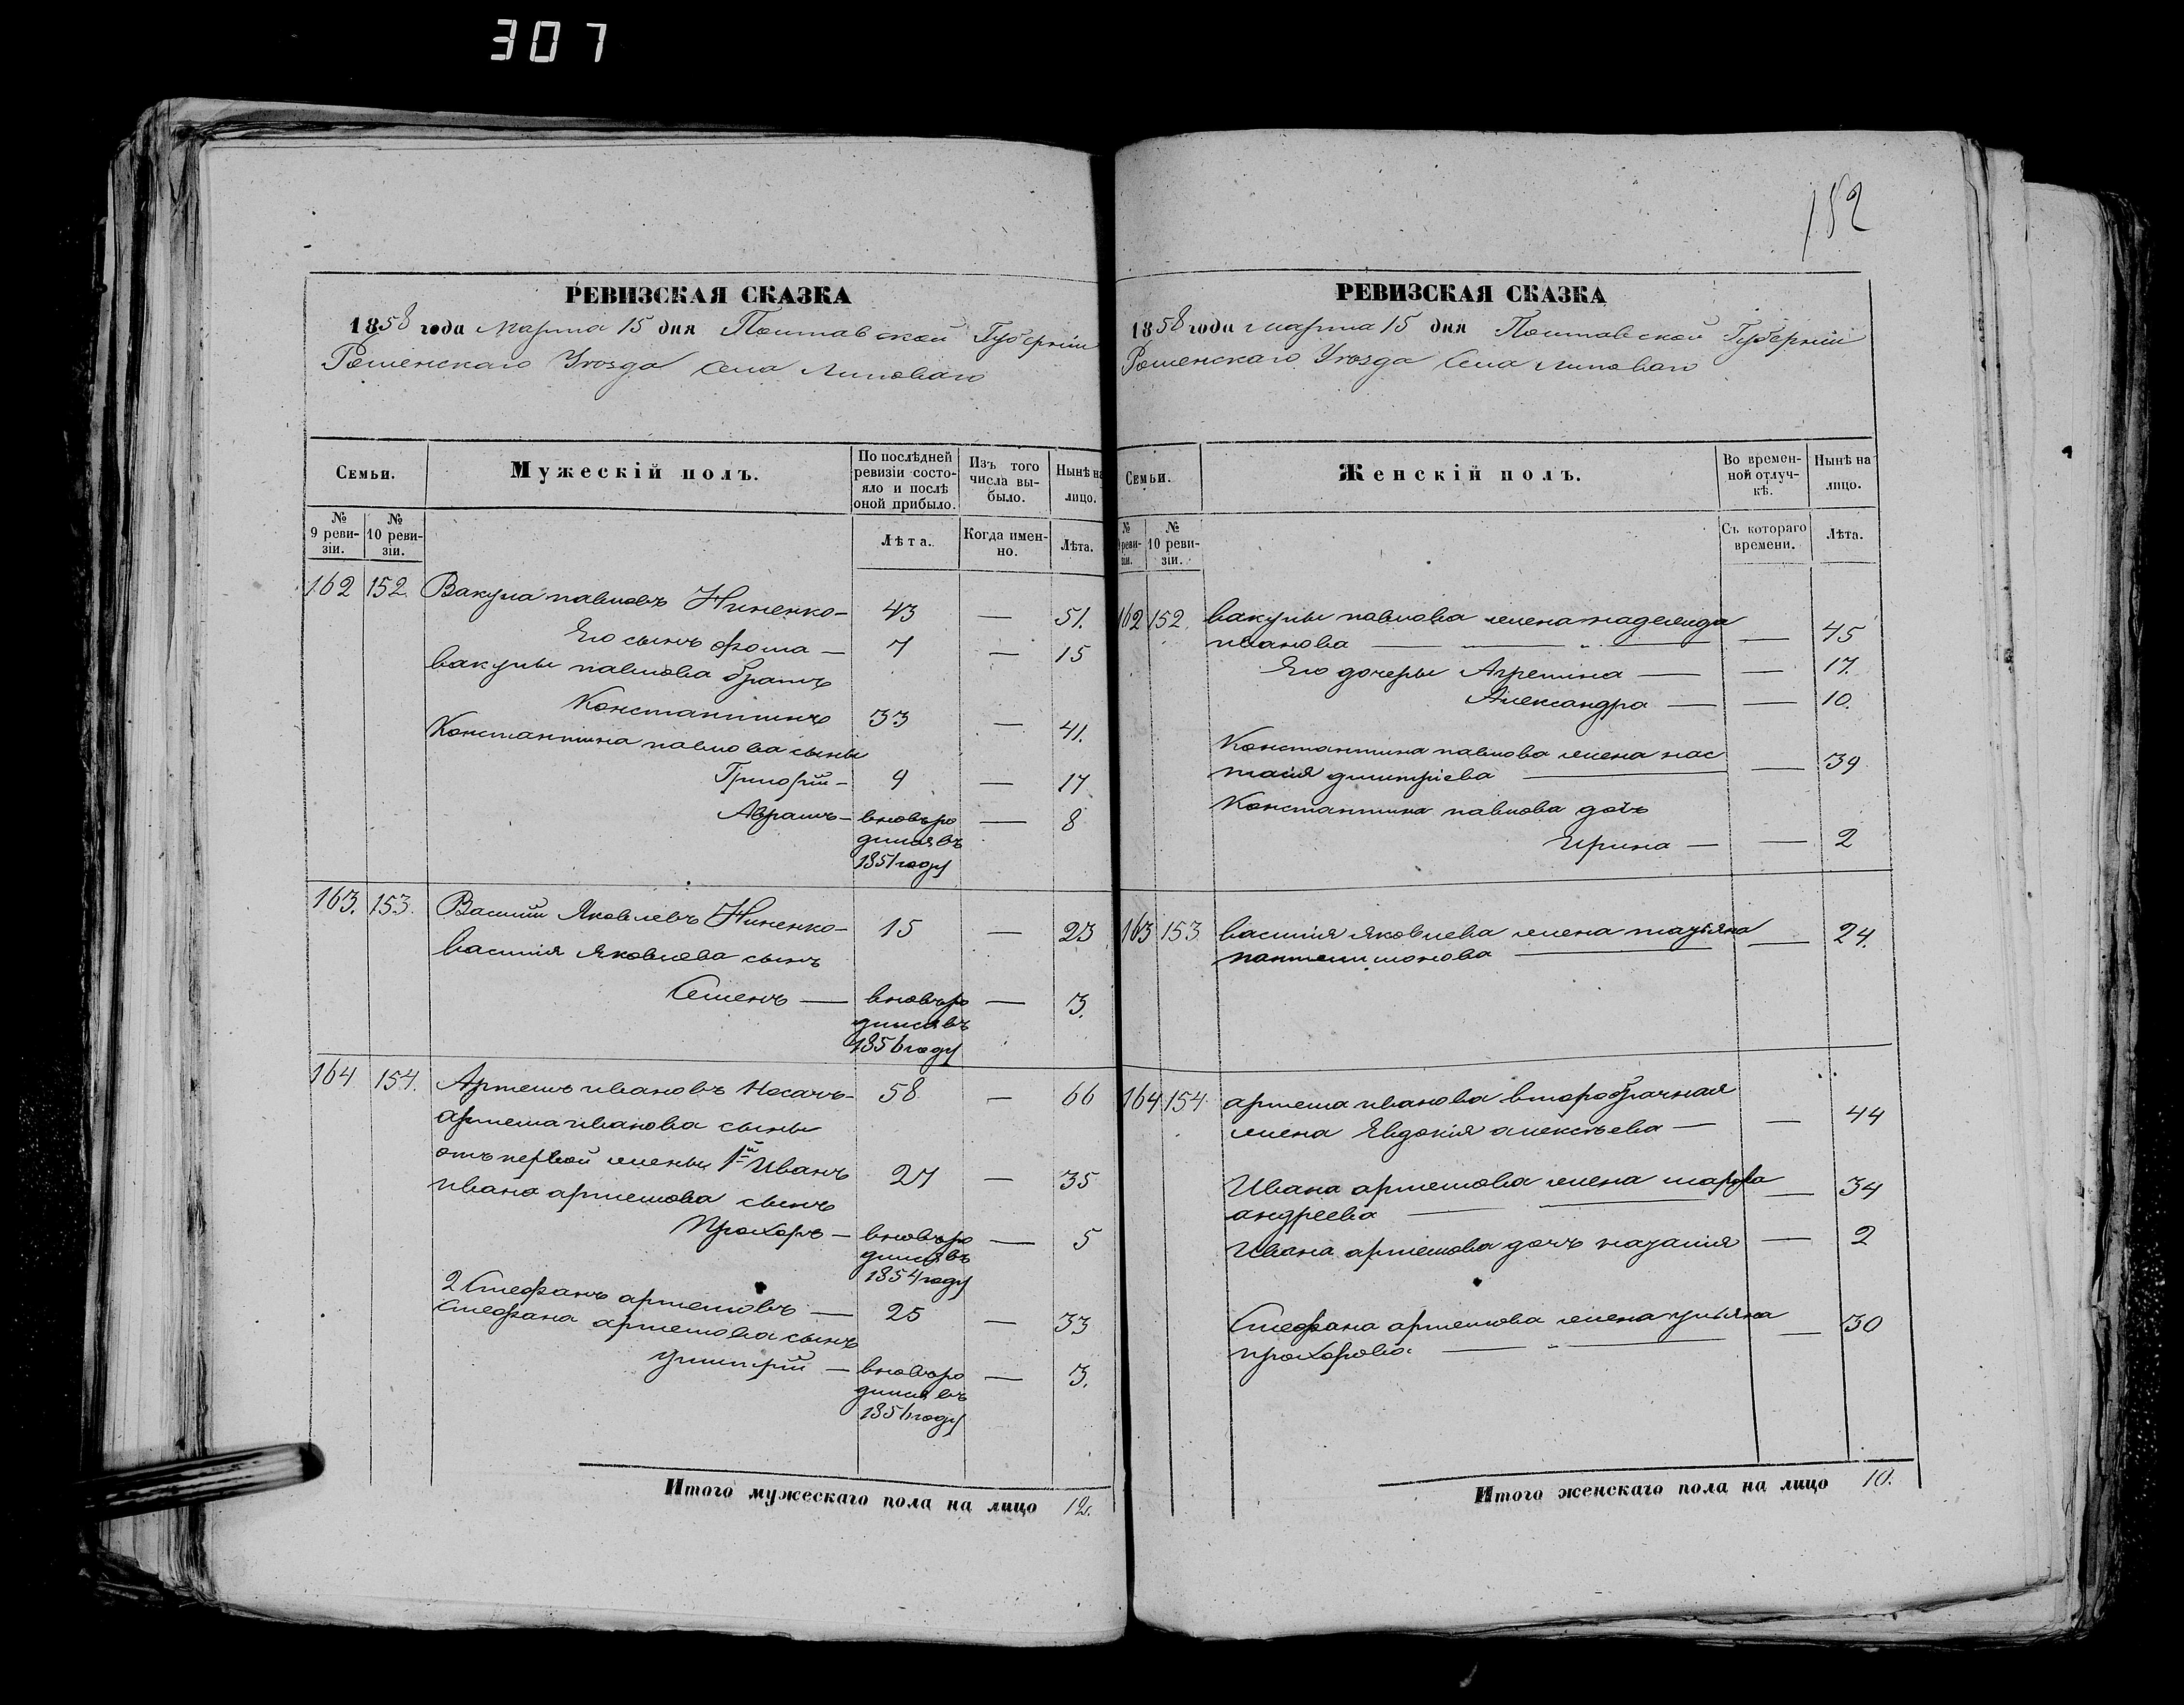 307
152
РЕВИЗСКАЯ СКАЗКА
1858 года марта 15 дня Полтавской Губерніи
Роменскаго Уѣзда Села Липоваго
Семьи.
Мужескій полъ.
По послѣдней ревизіи состояло и послѣ оной прибыло.
Изъ того числа выбыло.
Нынѣ на лицо.
№ 9 ревизіи.
№ 10 ревизіи.
Лѣта.
Когда именно.
Лѣта.
162 152 Вакула павловъ Ниненко — 43 — 51.
Его сынъ фома — 7 — 15
вакулы павлова братъ
Константинъ 33 — 41.
Константина павлова сыны
Григорій — 9 — 17
Аврамъ — вновьро — 8
дилсявъ
1851 году
163. 153. Василій Яковлевъ Ниненко — 15 — 23
василія Яковлева сынъ
Семенъ — вновьро — 3.
дилсявъ
1856 году
164 154. Артемъ ивановъ Носачъ — 58 — 66
артема иванова сыны
отъ первой жены 1й Иванъ 27 — 35
ивана артемова сынъ
Прохоръ — вновьро — 5
дилсявъ
1854 году
2 Стефанъ артемовъ — 25 — 33
Стефана артемова сынъ
Димитрій — вновьро — 3.
дилсявъ
1856 году
Итого мужескаго пола на лицо 12.
РЕВИЗСКАЯ СКАЗКА
1858 года марта 15 дня Полтавской Губерніи
Роменскаго Уѣзда Села Липоваго
Семьи.
Женскій полъ.
Во временной отлучкѣ.
Нынѣ на лицо.
№ 9 ревизіи.
№ 10 ревизіи.
Съ котораго времени.
Лѣта.
162 152. вакулы павлова жена надежда
иванова — — 45
Его дочеры Агрепина — — 17.
Александра — — 10.
Константина павлова жена нас
тасія димитріева — — 39
Константина павлова дочь
Ирина — — 2
163 153 василія яковлева жена татьяна
пантелимонова — — 24.
164 154 артема иванова второбрачная
жена Евдокія алексѣева — — 44
Ивана артемова жена марфа
андреева — — 34
Ивана артемова дочъ наталія — 2
Стефана артемова жена ульяна
прохорова — — 30
Итого женскаго пола на лицо 10.